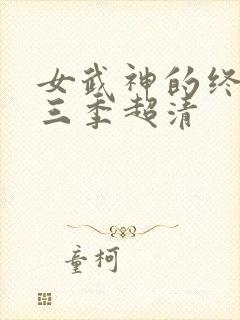 女武神的终
三季超清
童柯